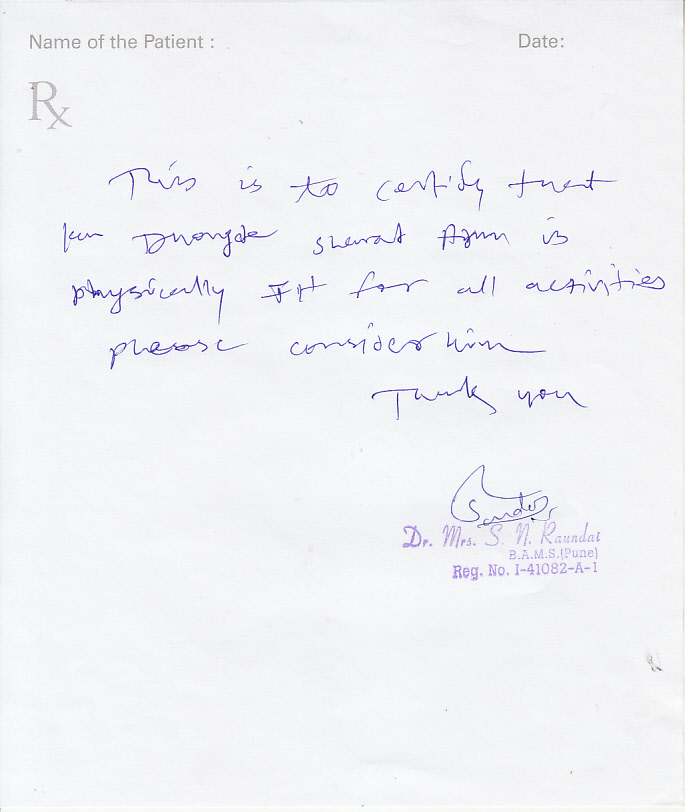 Name of the Patient : Date:
Rx
This is to certify that
is
physically fit for all activities
please consider him
Thank you
Dr. Mrs. S. N. Raundal
B.A.M.S.(Pune)
Reg. No. I-41082-A-1